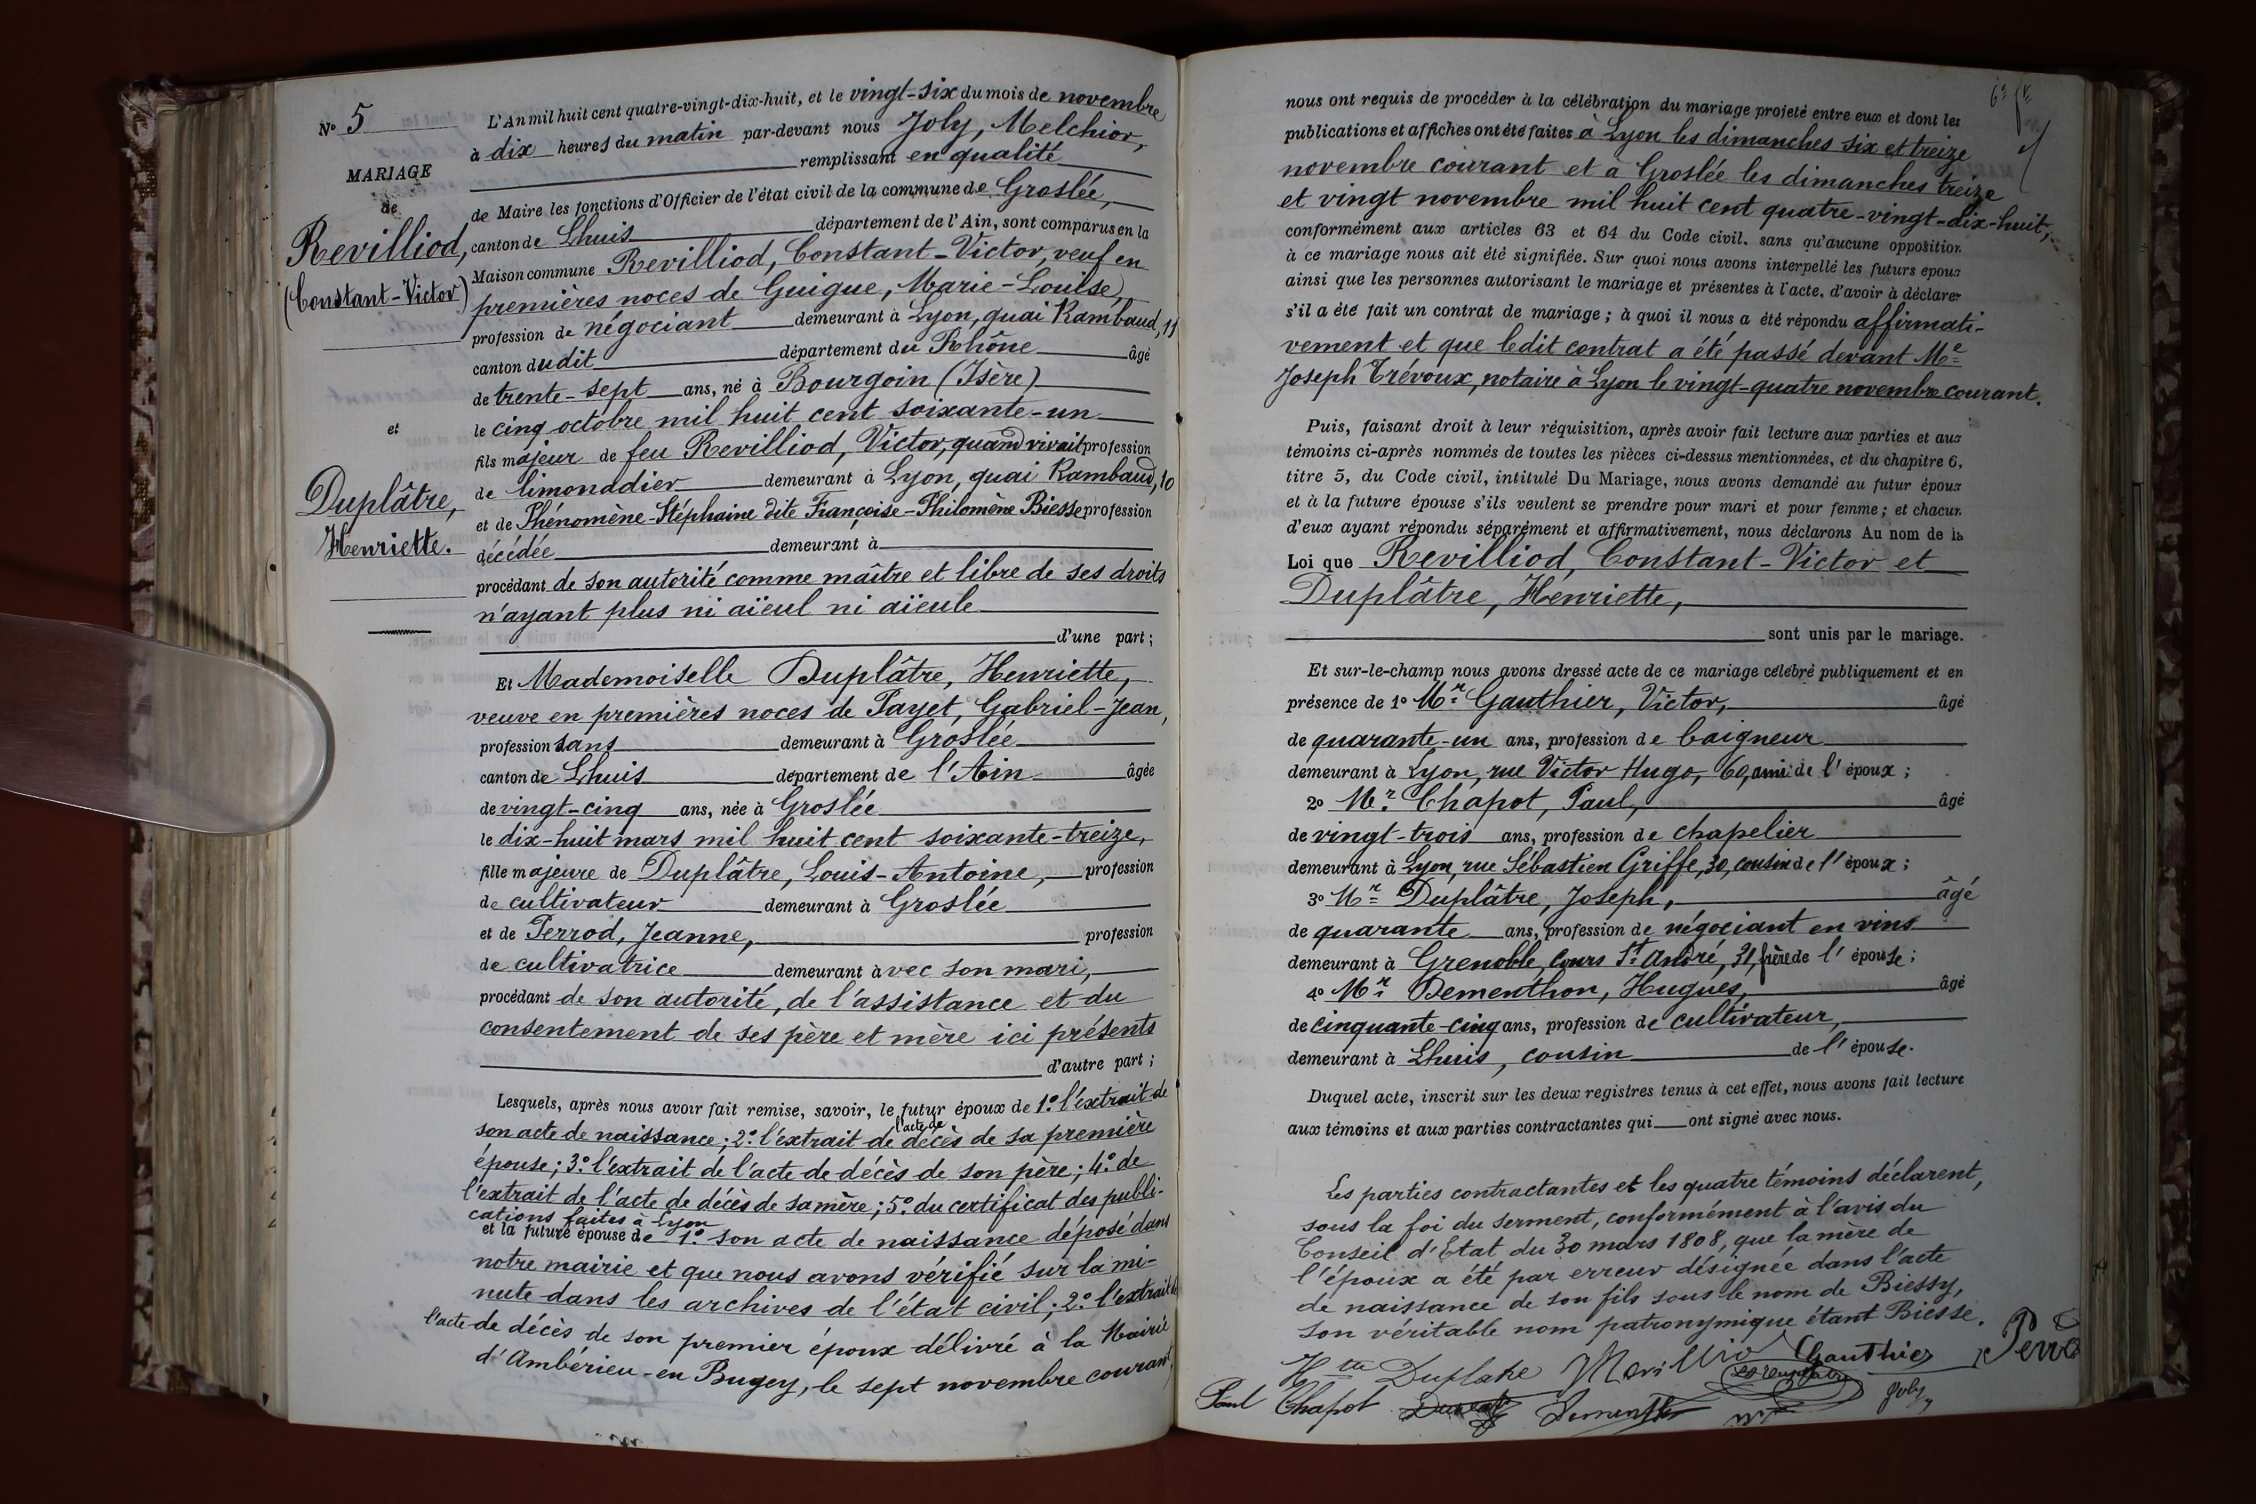 N° 5
MARIAGE
de
Revilliod,
(Constant-Victor)
et
Duplâtre,
Henriette.
L'An mil huit cent quatre-vingt-dix-huit, et le vingt-six du mois de novembre
à dix heures du matin par-devant nous Joly, Melchior,
remplissant en qualité
de Maire les fonctions d'Officier de l'état civil de la commune de Groslée,
canton de Lhuis département de l'Ain, sont comparus en la
Maison commune Revilliod, Constant-Victor, veuf en
premières noces de Guigue, Marie-Louise,
profession de négociant demeurant à Lyon, quai Rambaud, 11
canton dudit département du Rhône âgé
de trente-sept ans, né à Bourgoin (Isère)
le cinq octobre mil huit cent soixante-un
fils majeur de feu Revilliod, Victor, quand vivait profession
de limonadier demeurant à Lyon, quai Rambaud, 10
et de Phénomène-Stéphaine dite Françoise-Philomène Biesse profession
décédée demeurant à
procédant de son autorité comme maître et libre de ses droits
n'ayant plus ni aïeul ni aïeule
d'une part;
Et Mademoiselle Duplâtre, Henriette,
veuve en premières noces de Payet, Gabriel-Jean,
profession sans demeurant à Groslée
canton de Lhuis département de l'Ain âgée
de vingt-cinq ans, née à Groslée
le dix-huit mars mil huit cent soixante-treize,
fille majeure de Duplâtre, Louis-Antoine, profession
de cultivateur demeurant à Groslée
et de Perrod, Jeanne, profession
de cultivatrice demeurant avec son mari,
procédant de son autorité, de l'assistance et du
consentement de ses père et mère ici présents
d'autre part;
Lesquels, après nous avoir fait remise, savoir, le futur époux de 1° l'extrait de
son acte de naissance; 2° l'extrait de l'acte de décès de sa première
épouse; 3° l'extrait de l'acte de décès de son père; 4° de
l'extrait de l'acte de décès de sa mère; 5° du certificat des publi-
cations faites à Lyon
et la future épouse de 1° son acte de naissance déposé dans
notre mairie et que nous avons vérifié sur la mi-
nute dans les archives de l'état civil; 2° l'extrait de
l'acte de décès de son premier époux délivré à la Mairie
d'Ambérieu-en Bugey, le sept novembre courant,
nous ont requis de procéder à la célébration du mariage projeté entre eux et dont les
publications et affiches ont été faites à Lyon les dimanches six et treize
novembre courant et à Groslée les dimanches treize
et vingt novembre mil huit cent quatre-vingt-dix-huit,
conformément aux articles 63 et 64 du Code civil. sans qu'aucune opposition
à ce mariage nous ait été signifiée. Sur quoi nous avons interpellé les futurs époux
ainsi que les personnes autorisant le mariage et présentes à l'acte, d'avoir à déclarer
s'il a été fait un contrat de mariage; à quoi il nous a été répondu affirmati-
vement et que ledit contrat a été passé devant Me
Joseph Trévoux, notaire à Lyon le vingt-quatre novembre courant.
Puis, faisant droit à leur réquisition, après avoir fait lecture aux parties et aux
témoins ci-après nommés de toutes les pièces ci-dessus mentionnées, et du chapitre 6,
titre 5, du Code civil, intitulé Du Mariage, nous avons demandé au futur époux
et à la future épouse s'ils veulent se prendre pour mari et pour femme; et chacun
d'eux ayant répondu séparément et affirmativement, nous déclarons Au nom de la
Loi que Revilliod, Constant-Victor et
Duplâtre, Henriette,
sont unis par le mariage.
Et sur-le-champ nous avons dressé acte de ce mariage célébré publiquement et en
présence de 1° Mr Gauthier, Victor, âgé
de quarante-un ans, profession de baigneur
demeurant à Lyon, rue Victor Hugo, 60, ami de l'époux;
2° Mr Chapot, Paul, âgé
de vingt-trois ans, profession de chapelier
demeurant à Lyon, rue Sébastien Griffe, 30, cousin de l'époux;
3° Mr Duplâtre, Joseph, âgé
de quarante ans, profession de négociant en vins
demeurant à Grenoble, Cours St André, 31, frère de l'épouse;
4° Mr Dementhon, Hugues, âgé
de cinquante-cinq ans, profession de cultivateur,
demeurant à Lhuis, cousin de l'épouse.
Duquel acte, inscrit sur les deux registres tenus à cet effet, nous avons fait lecture
aux témoins et aux parties contractantes qui ont signé avec nous.
Les parties contractantes et les quatre témoins déclarent,
sous la foi du serment, conformément à l'avis du
Conseil d'État du 30 mars 1808, que la mère de
l'époux a été par erreur désignée dans l'acte
de naissance de son fils sous le nom de Biessy,
son véritable nom patronymique étant Biesse.
Htte Duplatre Gauthier
Paul Chapot Joly